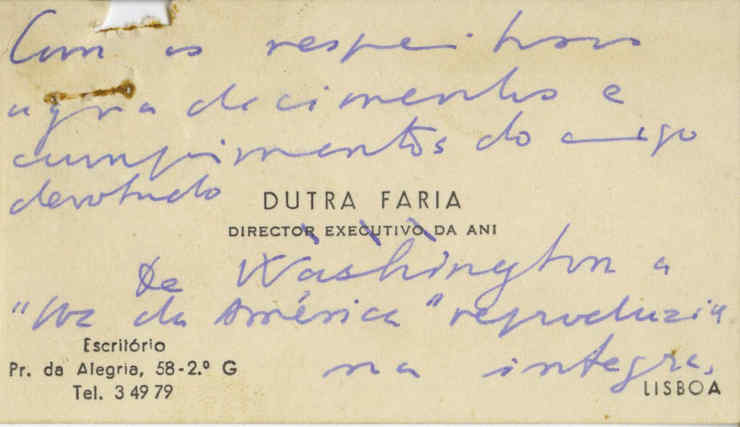 Com os respeitosos
agradecimentos e
cumprimentos do amigo
devotado
DUTRA FARIA
DIRECTOR EXECUTIVO DA ANI
De Washington a
"Voz da América" reproduziu
na integra.
Escritório
Pr. da Alegria, 58-2.º G
Tel. 3 49 79
LISBOA